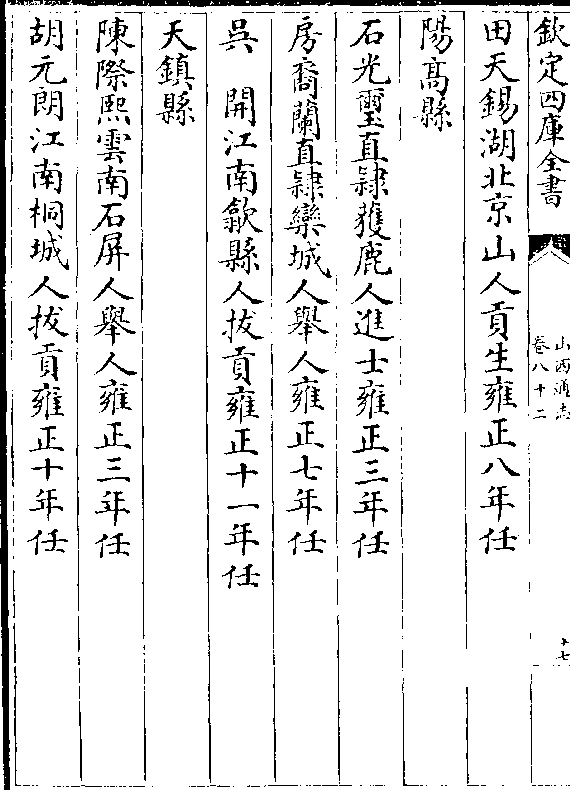 欽定四庫全書
山西通志
卷八十二
十七
田天錫湖北京山人貢生雍正八年任
陽高縣
石光璽直隷獲鹿人進士雍正三年任
房裔蘭直隷欒城人舉人雍正七年任
吳　開江南歙縣人拔貢雍正十一年任
天鎮縣
陳際熙雲南石屏人舉人雍正三年任
胡元朗江南桐城人拔貢雍正十年任